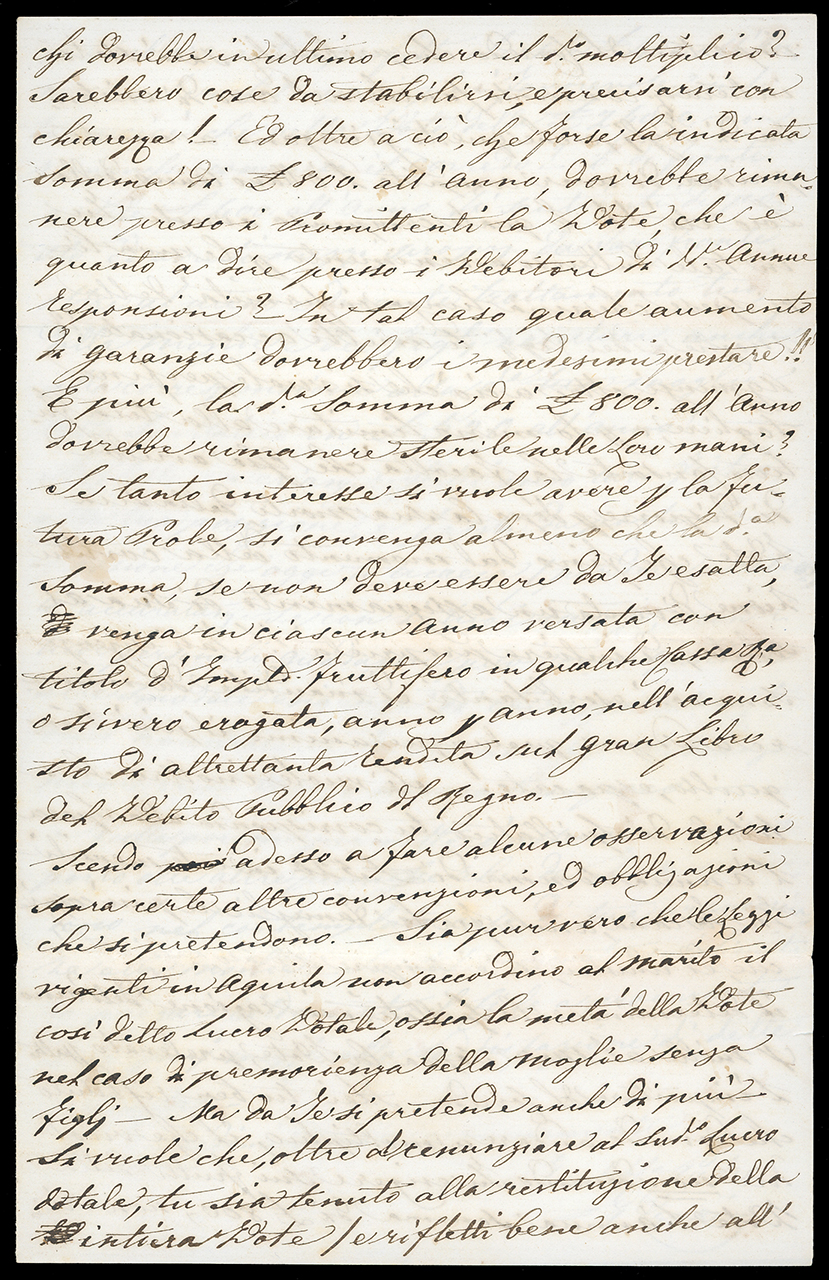 chi dovrebbe in ultimo cedere il d.o moltiplico?
Sarebbero cose da stabilirsi, e precisarsi con
chiarezza! — Ed oltre a ciò, che forse la indicata
Somma di £ 800. all'Anno, dovrebbe rima-
nere presso i Promittenti la Dote, che è
quanto a dire presso i Debitori di d.e Annue
responsioni? — In tal caso quale aumento
di garanzie dovrebbero i medesimi prestare!!
E più, la d.a Somma di £ 800. all'Anno
dovrebbe rimanere sterile nelle Loro mani?
Se tanto interesse si vuole avere p la fu-
tura Prole, si convenga almeno che la d.a
Somma, se non deve essere da Te esatta,
venga in ciascun Anno versata con
titolo d'Imp.to fruttifero in qualche Cassa
o sivvero erogata, anno p anno, nell'acqui-
sto di altrettanta rendita sul gran Libro
del Debito Pubblico del Regno. —
Scendo adesso a fare alcune osservazioni
sopra certe altre convenzioni, ed obbligazioni
che si pretendono. — Sia pur vero che le Leggi
vigenti in Aquila non accordino al marito il
così detto Lucro Dotale, ossia la metà della Dote
nel caso di premorienza della moglie senza
figlj — Ma da Te si pretende anche di più —
Si vuole che, oltre a renunziare al sud.o Lucro
dotale, tu sia tenuto alla restituzione della
intiera Dote / e rifletti bene anche all'